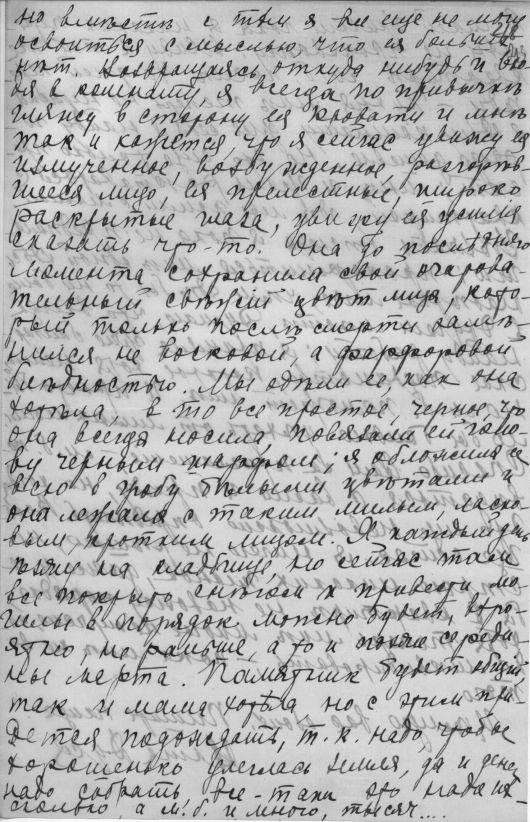 но вместѣ с тѣм я все еще не могу
освоиться с мыслью что ея больше
нѣт. Возвращаясь откуда нибудь и вхо-
дя в комнату, я всегда по привычкѣ
гляжу в сторону ея кровати и мнѣ
так и кажется, что я сейчас увижу ея
измученное, возбужденное, разгорѣв-
шееся лицо, ея прелестные, широко
раскрытые глаза, увижу ея усилія
сказать что-то. Она до послѣдняго
момента сохранила свой очарова-
тельный свѣжій цвѣт лица, кото-
рый только послѣ смерти замѣ-
нился не восковой, а фарфоровой
блѣдностью. Мы одѣли ее, как она
хотѣла, в то все простое, черное, что
она всегда носила, повязали ей голо-
ву черным шарфом; я обложила ее
всю в гробу бѣлыми цвѣтами и
она лежала с таким милым, ласко-
вым, кротким лицом. Я каждый день
хожу на кладбище, но сейчас там
все покрыто снѣгом и привести мо-
гилы в порядок можно будет, вѣро-
ятно, не раньше, а то и послѣ середи-
ны марта. Памятник будет общій,
так и мама хотѣла, но с этим при-
дется подождать, т. к. надо, чтобы
хорошенько улеглась земля, да и денег
надо собрать все-таки это надо нѣ-
сколько, а м. б. и много, тысяч....